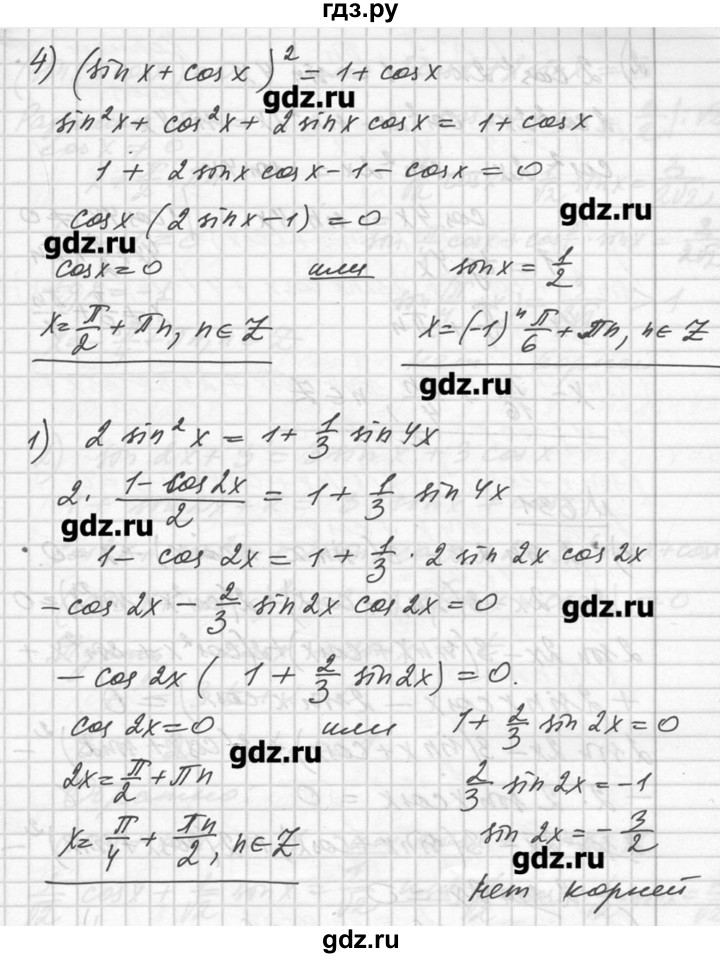 гдз.ру
4) (sin x + cos x)² = 1 + cos x
gdz.ru
sin²x + cos²x + 2 sin x cos x = 1 + cos x
1 + 2 sin x cos x - 1 - cos x = 0
gdz.ru
cos x (2 sin x - 1) = 0
gdz.ru
cos x = 0 или sin x = 1/2
x = π/2 + πn, n ∈ Z x = (-1)ⁿ π/6 + πn, n ∈ Z
gdz.ru
1) 2 sin²x = 1 + 1/3 sin 4x
2 · (1 - cos 2x)/2 = 1 + 1/3 sin 4x
gdz.ru
1 - cos 2x = 1 + 1/3 · 2 sin 2x cos 2x
- cos 2x - 2/3 sin 2x cos 2x = 0
gdz.ru
- cos 2x (1 + 2/3 sin 2x) = 0.
cos 2x = 0 или 1 + 2/3 sin 2x = 0
gdz.ru
2x = π/2 + πn 2/3 sin 2x = -1
x = π/4 + πn/2, n ∈ Z sin 2x = - 3/2
gdz.ru
нет корней
gdz.ru